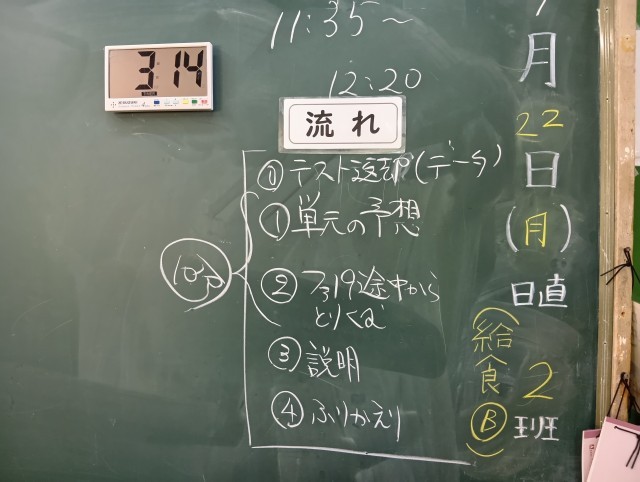 11:35～
12:20
流れ
⓪テスト返却(データ)
①単元の予想
②ファイル途中から
とりくむ
③説明
④ふりかえり
10分
3 14
月
22
日
(月)
日直
2
班
(給食Ⓑ)